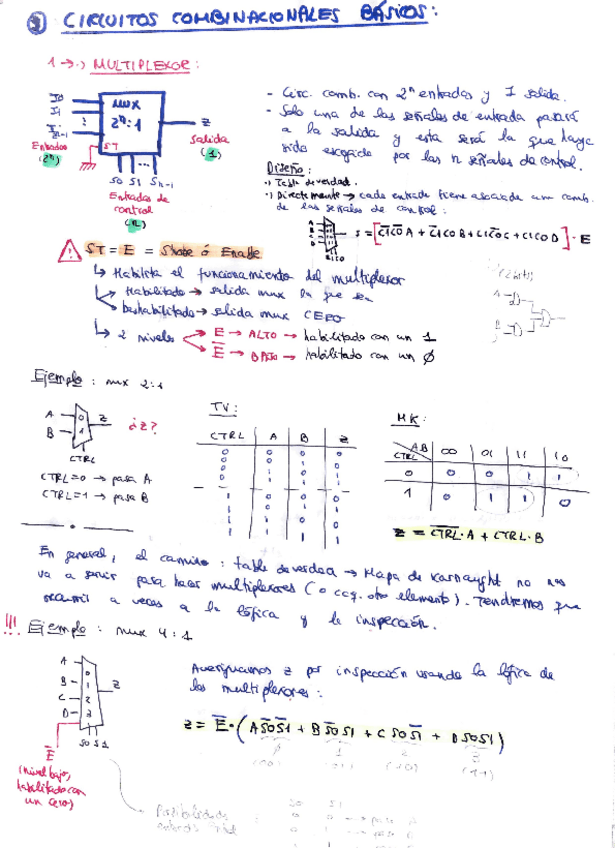 CIRCUITOS COMBINACIONALES BÁSICOS:
1 →·) MULTIPLEXOR:
I0
I1
MUX
2ⁿ:1
Z
ST
Entradas
(2ⁿ)
Salida
(1)
S0 S1 Sn-1
Entradas de
control
(n)
- Circ. comb. con 2ⁿ entradas y 1 salida.
- Solo una de las señales de entrada pasará
a la salida y esta será la que haya
sido escogida por las n señales de control.
Diseño:
·) Tabla de verdad.
·) Directamente → cada entrada tiene asociada una comb.
de las señales de control:
ST = E = Strobe ó Enable
↳ Habilita el funcionamiento del multiplexor
Habilitado → salida mux lo que sea
Deshabilitado → salida mux CERO
↳ 2 niveles
E → ALTO → habilitado con un 1
E̅ → BAJO → habilitado con un 0
Ejemplo: mux 2:1
A
B
0
1
Z
CTRL
¿Z?
CTRL=0 → pasa A
CTRL=1 → pasa B
TV:
CTRL A B Z
MK:
CTRL AB 00 01 11 10
0 0 0 1 1
1 0 1 1 0
Z = C̅T̅R̅L̅·A + CTRL·B
En general, el camino: tabla de verdad → Mapa de Karnaught no nos
va a servir para hacer multiplexores (o otro elemento). Tendremos que
recurrir a veces a la lógica y la inspección.
!!! Ejemplo: mux 4:1
A
B
C
D
0
1
2
3
Z
S0 S1
E̅
(nivel bajo,
habilitado con
un cero)
Averiguamos Z por inspección usando la lógica de
los multiplexores:
Z = E̅·(A S̅0̅ S̅1̅ + B S̅0̅ S1 + C S0 S̅1̅ + D S0 S1)